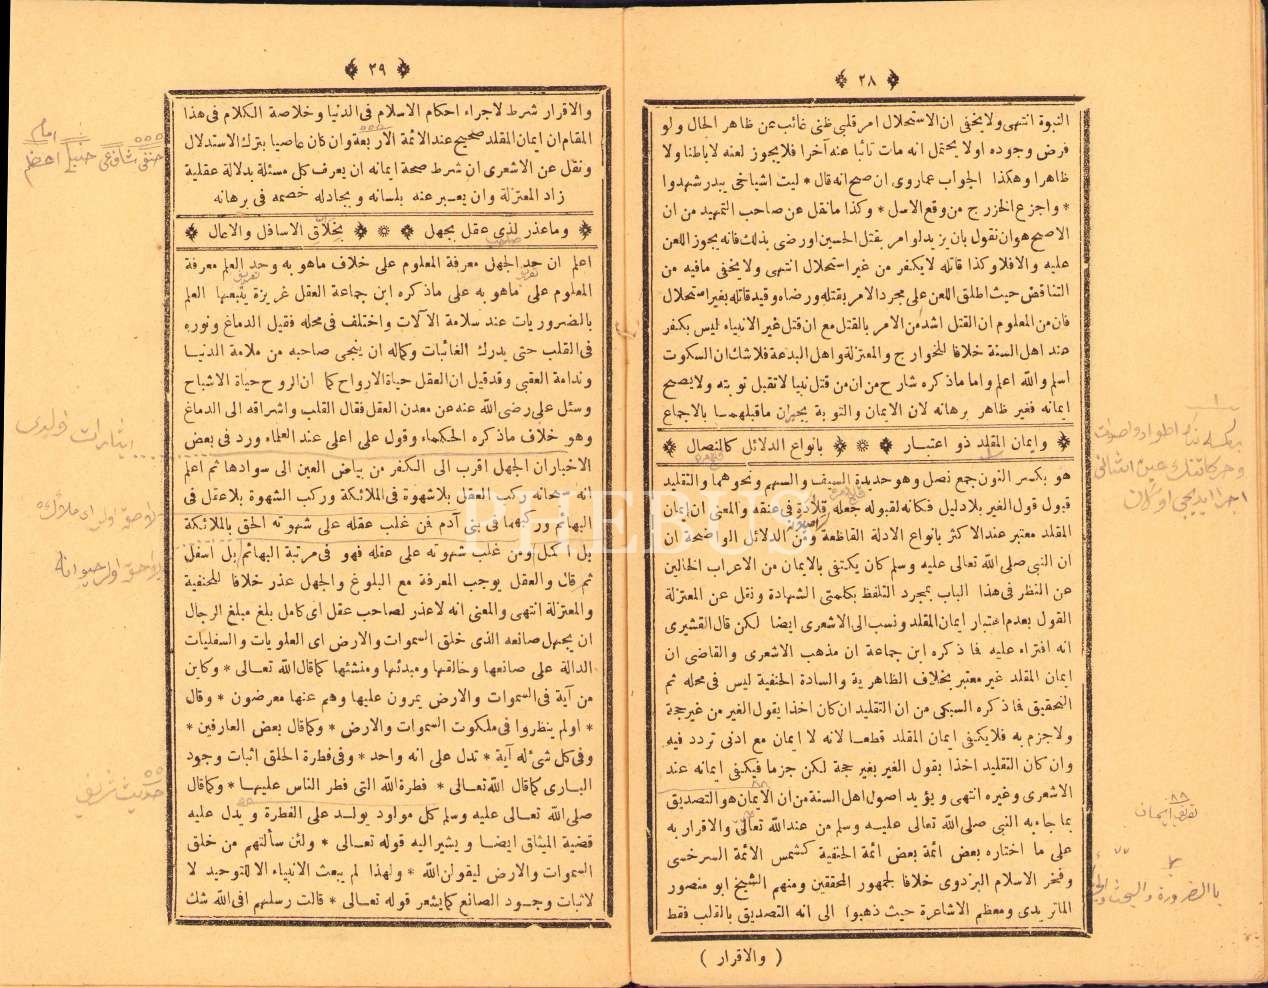 ٢٨
النبوة انتهى ولا يخفى ان الاستحلال امر قلبى ظنى غائب عن ظاهر الحال ولو
فرض وجوده اولا يحتمل انه مات تائبا عنه آخرا فلا يجوز لعنه لا باطنا ولا
ظاهرا وهكذا الجواب عما روى ان صح انه قال * ليت اشياخى ببدر شهدوا
* واجزع الخزرج من وقع الاسل * وكذا ما نقل عن صاحب التمهيد من ان
الاصح هو ان نقول بان يزيد لو امر بقتل الحسين او رضى بذلك فانه يجوز اللعن
عليه والا فلا وكذا قاتله لا يكفر من غير استحلال انتهى ولا يخفى ما فيه من
التناقض حيث اطلق اللعن على مجرد الامر بقتله ورضاه وقيد قاتله بغير استحلال
فان من المعلوم ان القتل اشد من الامر بالقتل مع ان قتل غير الانبياء ليس بكفر
عند اهل السنة خلافا للخوارج والمعتزلة واهل البدعة فلا شك ان السكوت
اسلم والله اعلم واما ما ذكره شارح من ان من قتل نبيا لا تقبل توبته ولا يصح
ايمانه فغير ظاهر برهانه لان الايمان والتوبة يجبران ما قبلهما بالاجماع
وايمان المقلد ذو اعتبار * بانواع الدلائل كالنصال
هو بكسر النون جمع نصل وهو حديدة السيف والسهم ونحوهما والتقليد
قبول قول الغير بلا دليل فكانه لقبوله جعله قلادة فى عنقه والمعنى ان ايمان
المقلد معتبر عند الاكثر بانواع الادلة القاطعة ومن الدلائل الواضحة ان
ان النبى صلى الله تعالى عليه وسلم كان يكتفى بالايمان من الاعراب الخالين
عن النظر فى هذا الباب بمجرد التلفظ بكلمتى الشهادة ونقل عن المعتزلة
القول بعدم اعتبار ايمان المقلد ونسب الى الاشعرى ايضا لكن قال القشيرى
انه افتراء عليه فا ذكره ابن جماعة ان مذهب الاشعرى والقاضى ان
ايمان المقلد غير معتبر بخلاف الظاهرية والسادة الحنفية ليس فى محله ثم
التحقيق فا ذكره السبكى من ان التقليد ان كان اخذا بقول الغير من غير حجة
ولا جزم به فلا يكفى ايمان المقلد قطعا لانه لا ايمان مع ادنى تردد فيه
وان كان التقليد اخذا بقول الغير بغير حجة لكن جزما فيكفى ايمانه عند
الاشعرى وغيره انتهى ويؤيد اصول اهل السنة من ان الايمان هو التصديق
بما جاء به النبى صلى الله تعالى عليه وسلم من عند الله تعالى والاقرار به
على ما اختاره بعض ائمة بعض ائمة الحنفية كشمس الائمة السرخسى
وفخر الاسلام البزدوى خلافا لجمهور المحققين ومنهم الشيخ ابو منصور
الماتريدى ومعظم الاشاعرة حيث ذهبوا الى انه التصديق بالقلب فقط
( والاقرار )
٢٩
والاقرار شرط لاجراء احكام الاسلام فى الدنيا وخلاصة الكلام فى هذا
المقام ان ايمان المقلد صحيح عند الائمة الاربعة وان كان عاصيا بترك الاستدلال
ونقل عن الاشعرى ان شرط صحة ايمانه ان يعرف كل مسئلة بدلالة عقلية
زاد المعتزلة وان يعبر عنه بلسانه ويجادله خصمه فى برهانه
وما عذر لذى عقل بجهل * بخلاق الاسافل والاعال
اعلم ان حد الجهل معرفة المعلوم على خلاف ما هو به وحد العلم معرفة
المعلوم على ما هو به على ما ذكره ابن جماعة العقل غريزة يتبعها العلم
بالضروريات عند سلامة الآلات واختلف فى محله فقيل الدماغ ونوره
فى القلب حتى يدرك الغائبات وكماله ان ينجى صاحبه من ملامة الدنيا
وندامة العقبى وقد قيل ان العقل حياة الارواح كما ان الروح حياة الاشباح
وسئل على رضى الله عنه عن معدن العقل فقال القلب واشراقه الى الدماغ
وهو خلاف ما ذكره الحكماء وقول على اعلى عند العلماء ورد فى بعض
الاخبار ان الجهل اقرب الى الكفر من بياض العين الى سوادها ثم اعلم
انه سبحانه ركب العقل بلا شهوة فى الملائكة وركب الشهوة بلا عقل فى
البهائم وركبهما فى بنى آدم فن غلب عقله على شهوته الحق بالملائكة
بل اكمل ومن غلب شهوته على عقله فهو فى مرتبة البهائم بل اسفل
ثم قال والعقل يوجب المعرفة مع البلوغ والجهل عذر خلافا للحنفية
والمعتزلة انتهى والمعنى انه لا عذر لصاحب عقل اى كامل بلغ مبلغ الرجال
ان يجهل صانعه الذى خلق السموات والارض اى العلويات والسفليات
الدالة على صانعها وخالقها ومبدئها ومنشئها كما قال الله تعالى * وكاين
من آية فى السموات والارض يمرون عليها وهم عنها معرضون * وقال
* اولم ينظروا فى ملكوت السموات والارض * وكما قال بعض العارفين *
وفى كل شئ له آية * تدل على انه واحد * وفى فطرة الخلق اثبات وجود
البارى كما قال الله تعالى * فطرة الله التى فطر الناس عليها * وكما قال
صلى الله تعالى عليه وسلم كل مواود يولد على الفطرة ويدل عليه
قضية الميثاق ايضا ويشير اليه قوله تعالى * ولئن سألتهم من خلق
السموات والارض ليقولن الله * ولهذا لم يبعث الانبياء الا للتوحيد لا
لاثبات وجود الصانع كما يشعر قوله تعالى * قالت رسلهم افى الله شك
امام
حنفى شافعى حنبلى اعظم
حديث شريف
PHEBUS